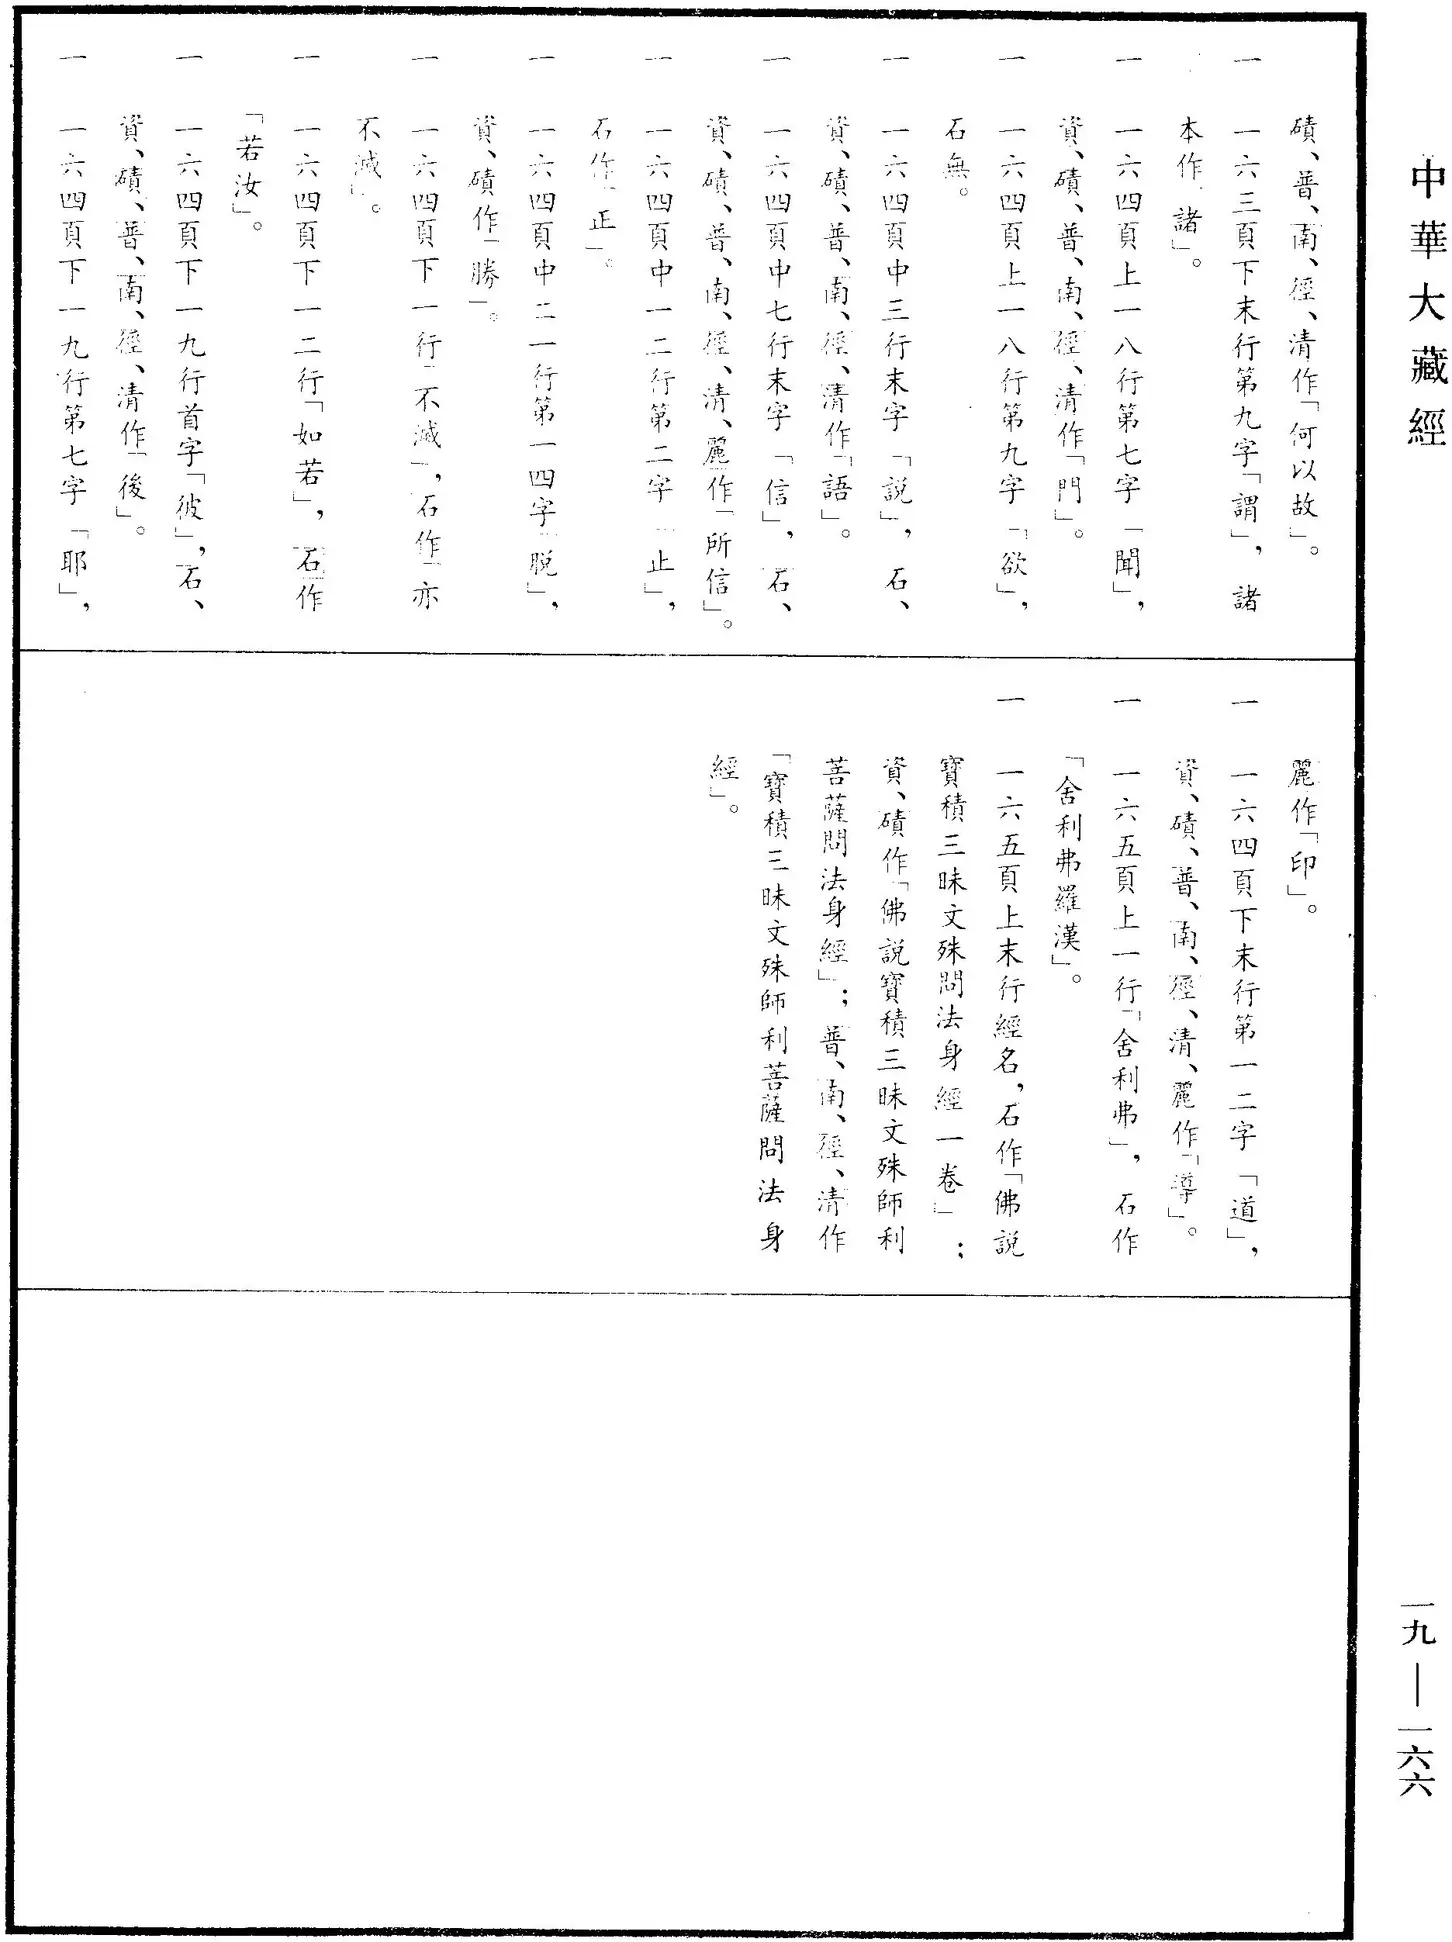 中華大藏經
磧、普、南、徑、清作「何以故」。
一 一六三頁下末行第九字「謂」，諸
本作「諸」。
一 一六四頁上一八行第七字「聞」，
資、磧、普、南、徑、清作「門」。
一 一六四頁上一八行第九字「欲」，
石無。
一 一六四頁中三行末字「説」，石、
資、磧、普、南、徑、清作「語」。
一 一六四頁中七行末字「信」，石、
資、磧、普、南、徑、清、麗作「所信」。
一 一六四頁中一二行第二字「止」，
石作「正」。
一 一六四頁中二一行第一四字「脱」，
資、磧作「勝」。
一 一六四頁下一行「不滅」，石作「亦
不滅」。
一 一六四頁下一二行「如若」，石作
「若汝」。
一 一六四頁下一九行首字「彼」，石、
資、磧、普、南、徑、清作「後」。
一 一六四頁下一九行第七字「耶」，
麗作「印」。
一 一六四頁下末行第一二字「道」，
資、磧、普、南、徑、清、麗作「導」。
一 一六五頁上一行「舍利弗」，石作
「舍利弗羅漢」。
一 一六五頁上末行經名，石作「佛説
寶積三昧文殊問法身經一卷」；
資、磧作「佛説寶積三昧文殊師利
菩薩問法身經」；普、南、徑、清作
「寶積三昧文殊師利菩薩問法身
經」。
一九——一六六